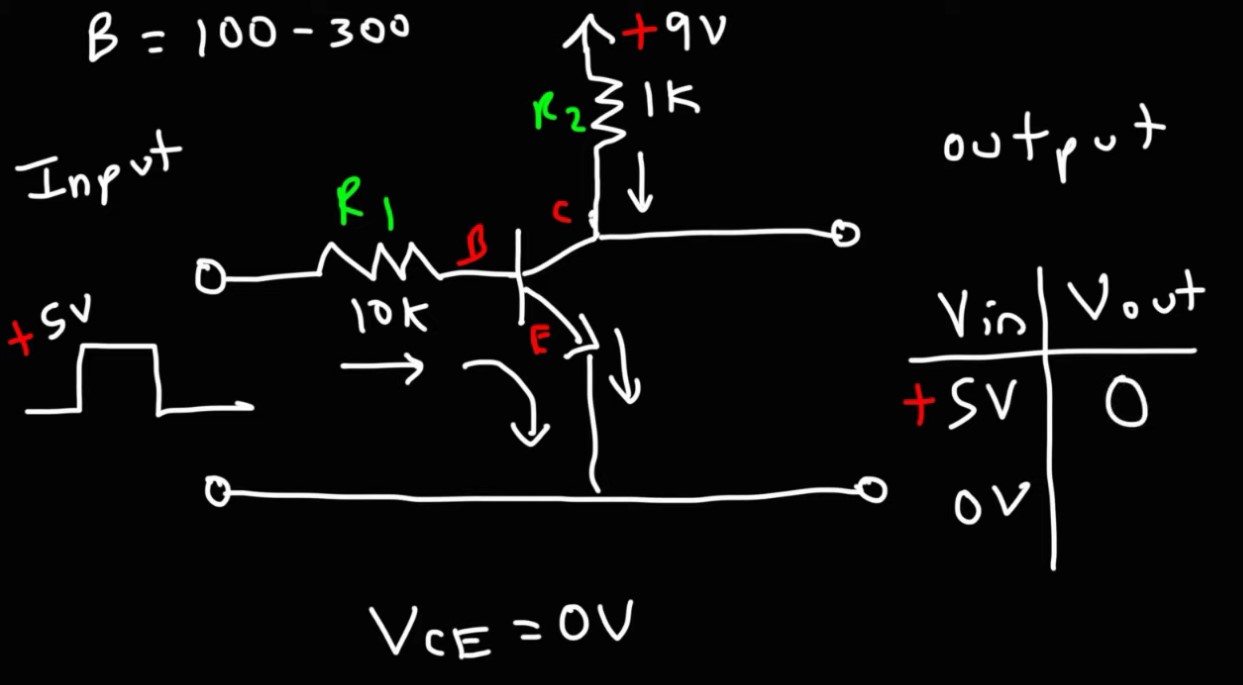 B = 100 - 300
+9V
R2
1K
Input
output
R1
C
B
10K
E
+5V
Vin
Vout
+5V
0
0V
VCE = 0V